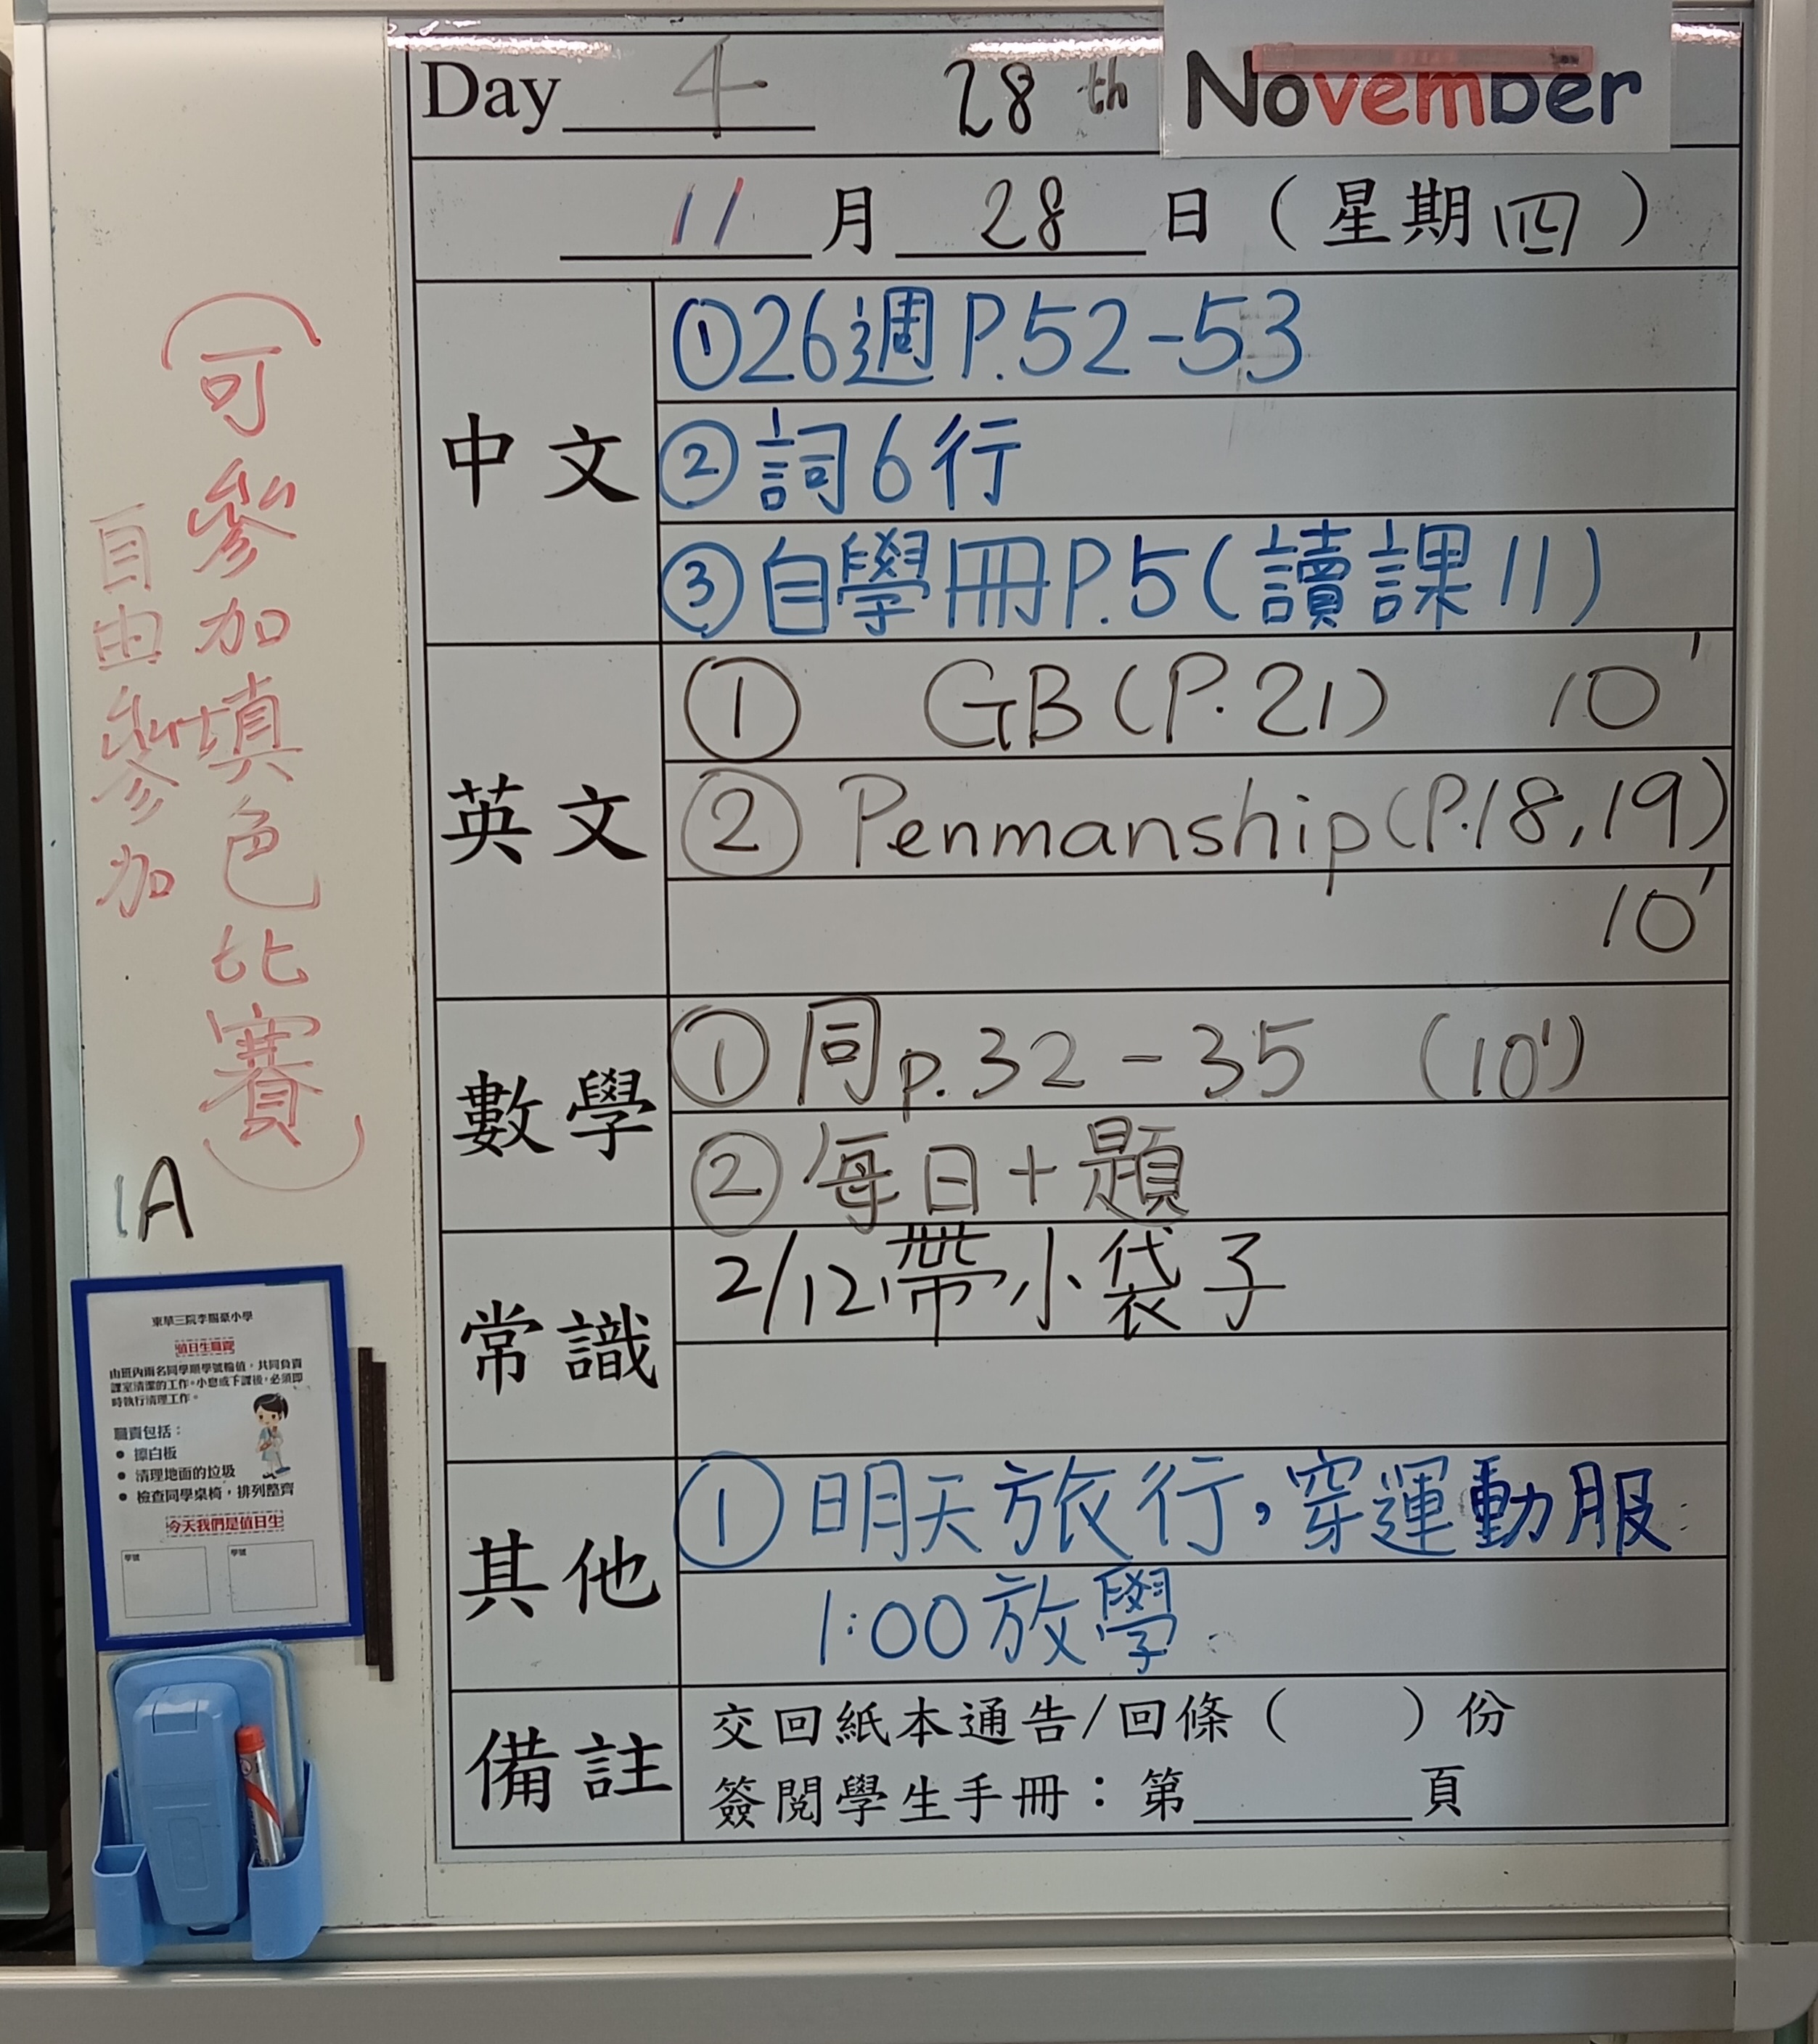 Day 4 28th November
11月28日（星期四）
中文
①26週P.52-53
②詞6行
③自學冊P.5(讀課11)
英文
① GB(P.21) 10'
② Penmanship(P.18,19)
10'
數學
①同p.32-35 (10')
②每日十題
常識
2/12帶小袋子
其他
①明天旅行，穿運動服
1:00放學
備註
交回紙本通告/回條（ ）份
簽閱學生手冊：第____頁
(可參加填色比賽)
自由參加
1A
東華三院李賜豪小學
值日生職責
由班內兩名同學順學號輪值，共同負責
課室清潔的工作。小息或下課後，必須即
時執行清理工作。
職責包括：
● 擦白板
● 清理地面的垃圾
● 檢查同學桌椅，排列整齊
今天我們是值日生
學號 學號